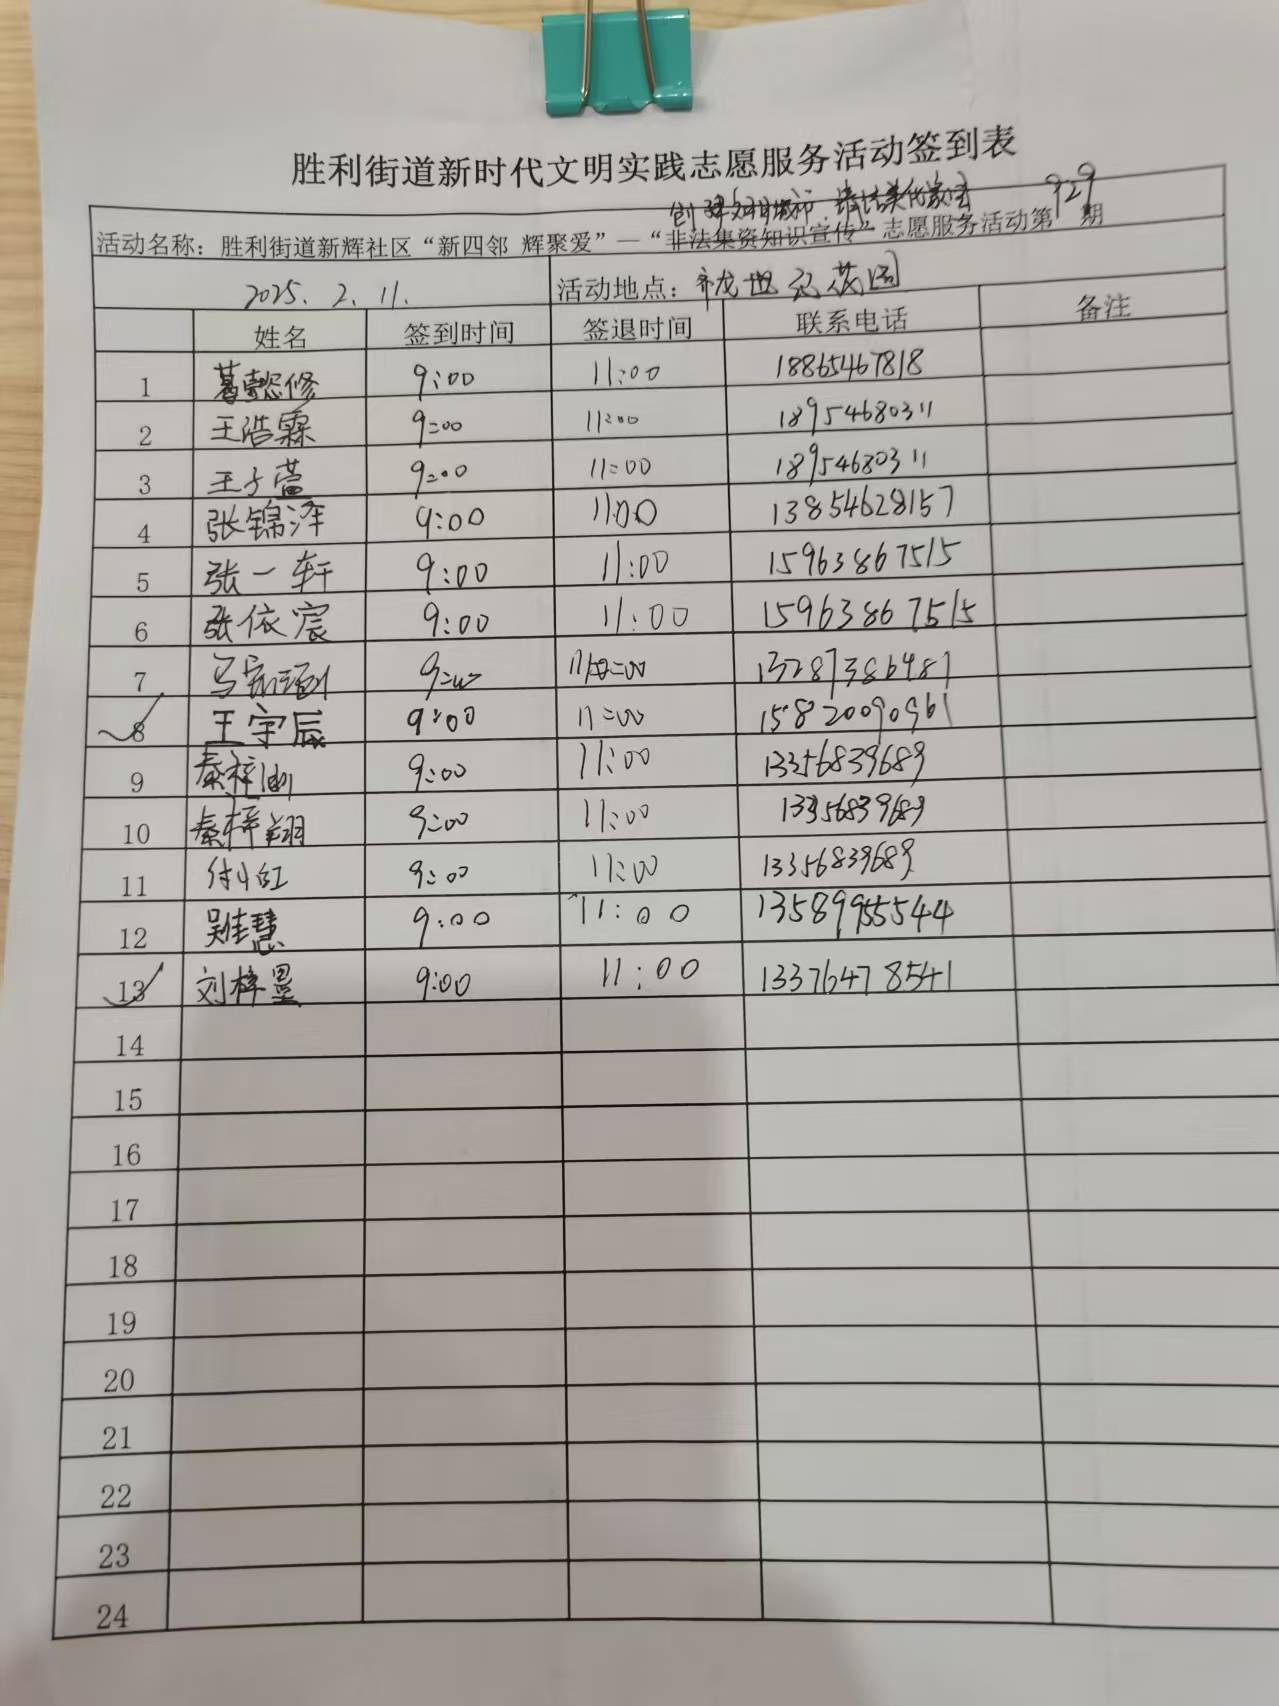 胜利街道新时代文明实践志愿服务活动签到表
创建文明城市，清洁美化家园 929
活动名称：胜利街道新辉社区“新四邻 辉聚爱”—“非法集资知识宣传”志愿服务活动第 期
2025. 2. 11. 活动地点：
姓名 签到时间 签退时间 联系电话 备注
1 葛懿修 9:00 11:00 18865467818
2 王浩霖 9:00 11:00 18954680311
3 王子萱 9:00 11:00 18954680311
4 张锦泽 9:00 11:00 13854628157
5 张一轩 9:00 11:00 15963867515
6 张依宸 9:00 11:00 15963867515
7 马 9:00 11:00 13287386481
8 王宇辰 9:00 11:00 15820090961
9 秦梓涵 9:00 11:00 13356839689
10 秦梓翔 9:00 11:00 13356839689
11 付小红 9:00 11:00 13356839689
12 吴佳慧 9:00 11:00 13589955544
13 刘梓墨 9:00 11:00 13376478541
14
15
16
17
18
19
20
21
22
23
24